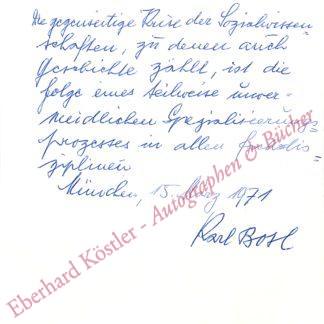 Die gegenseitige Krise der Sozialwissen-
schaften, zu denen auch
Geschichte zählt, ist die
Folge eines teilweise unver-
meidlichen Spezialisierungs-
prozesses in allen
ziplinen
München, 15. März 1971
Karl Bosl
Eberhard Köstler - Autographen & Bücher